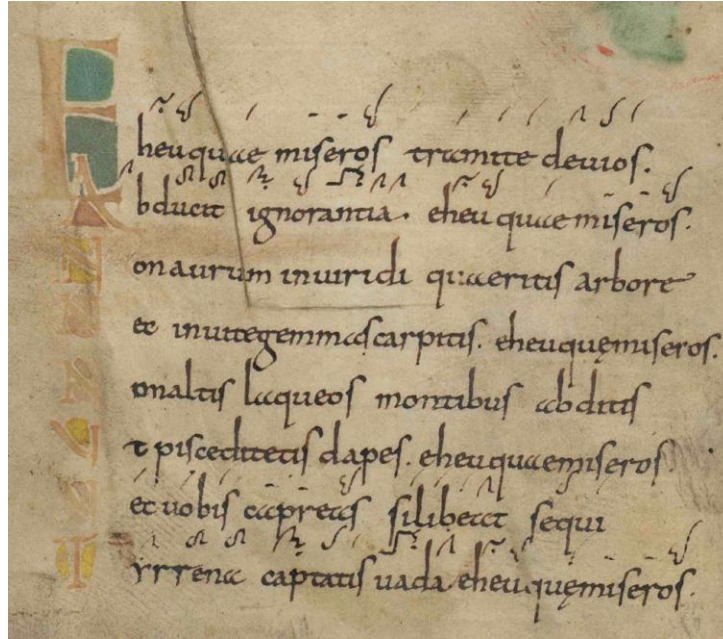 Eheu quae miseros tramite deuios.
Abducit ignorantia. eheu quae miseros.
Non aurum in uiridi quaeritis arbore
Nec in uite gemmas carpitis. eheu quę miseros.
Non altis laqueos montibus abditis
Ut pisce ditetis dapes. eheu quae miseros
Nec uobis capreas si libeat sequi
Tyrrena captatis uada. eheu quę miseros.